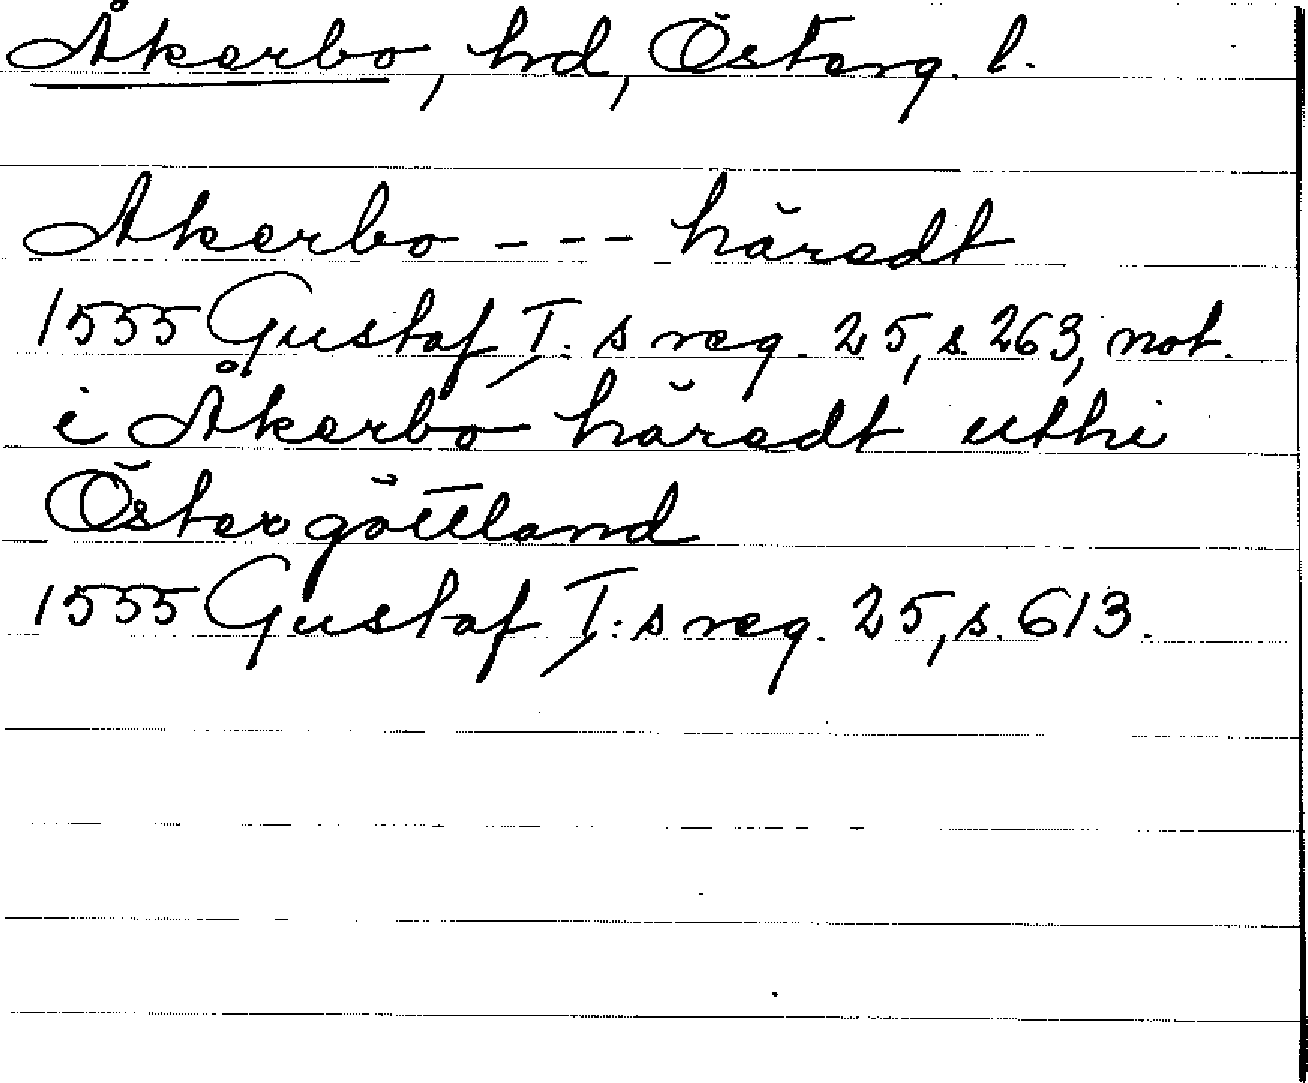 Åkerbo, hd, Österg. l.
Akerbo - - - häredt
1555 Gustaf I:s reg. 25, s. 263, not.
i Åkerbo häredt uthi
Östergöttland
1555 Gustaf I:s reg. 25, s. 613.